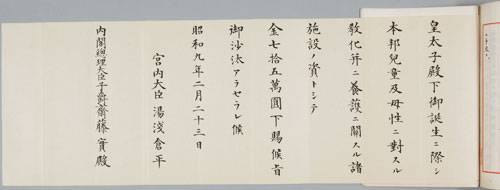 皇太子殿下御誕生ニ際シ
本邦兒童及母性ニ對スル
敎化幷ニ養護ニ關スル諸
施設ノ資トシテ
金七拾五萬圓下賜候旨
御沙汰アラセラレ候
昭和九年二月二十三日
宮内大臣湯淺倉平
内閣總理大臣子爵齋藤實殿